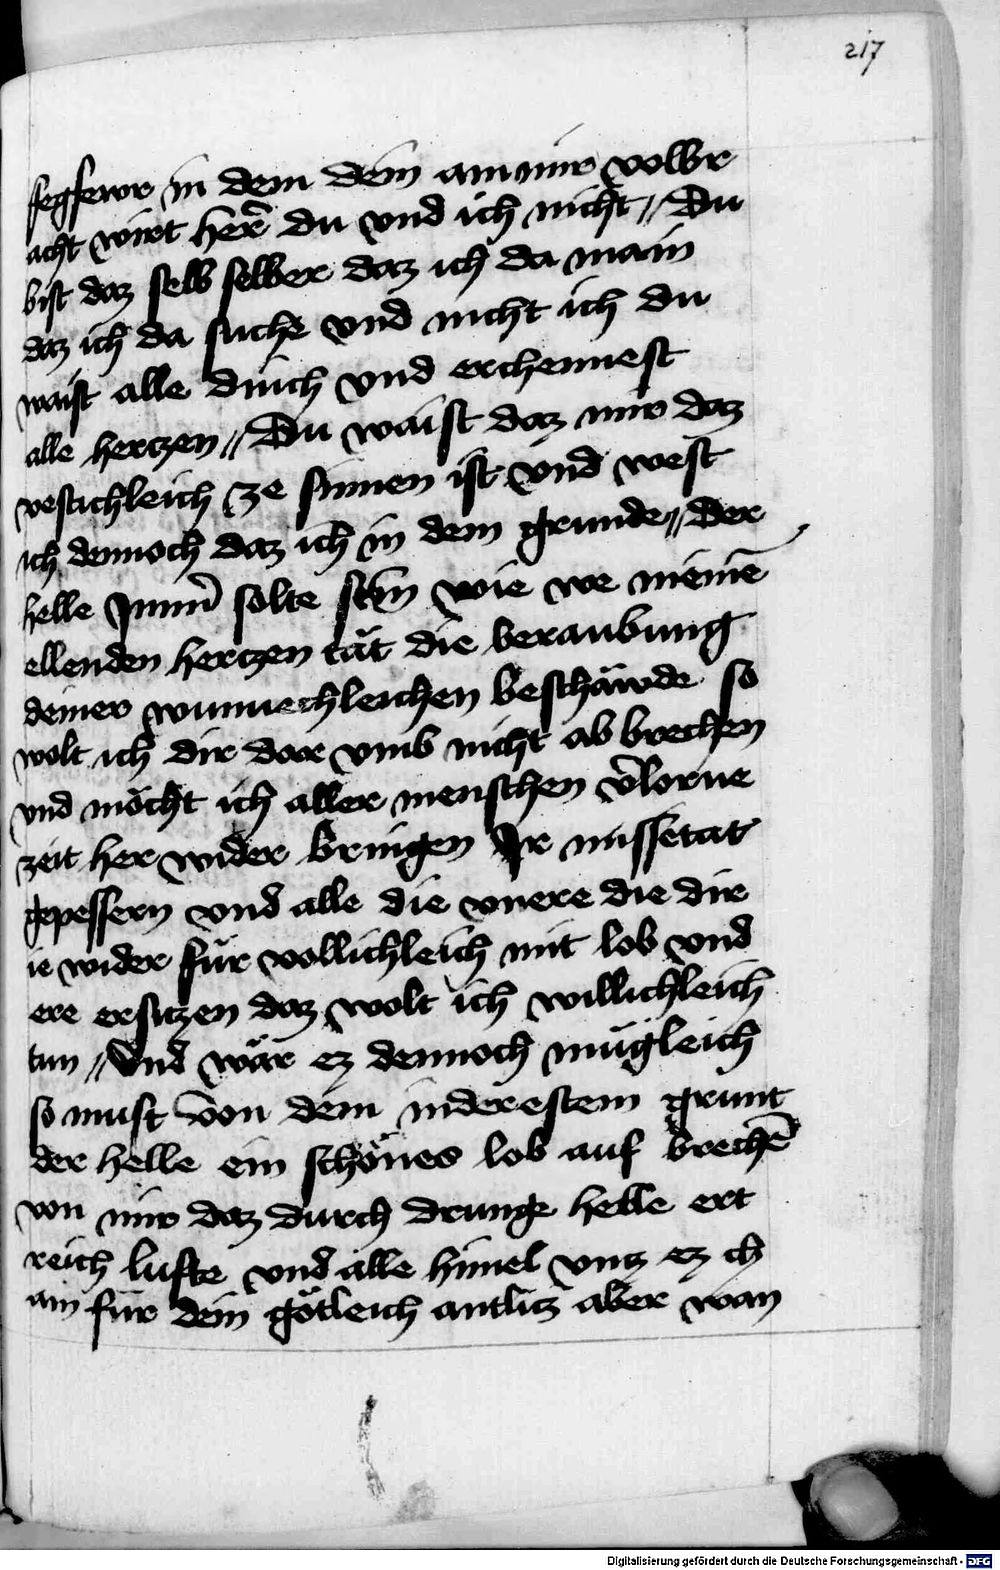 217
fegfewr in dem dein am mir volbr
acht wirt her̄ du vnd ich nicht // Du
bist daz selb selber daz ich da main
daz ich da suche vnd nicht ich du
waist alle dinch vnd erchennest
alle herczen // Du waist daz mir daz
vestichleich ze sinnen ist vnd west
ich dennoch daz ich in dem grunde // der
helle Jmm̄ solte sein wie we meinē
ellenden herczen tät die beraubung
deiner wunnechleichen beschäwde so
wolt ich dir dar vmb nicht ab brechen
vnd möcht ich aller menschen v̄lorne
zeit her wider bringen Jr missetat
gepessern vnd alle die vnere die dir
ie wider für vollichleich mit lob vnd
ere ersiczen daz wolt ich willichleich
tun // Vnd wär ez dennoch mügleich
so must von dem inderestem grunt
der helle ein schönes lob auf brechē
von mir daz durch drunge helle ert
reich lufte vnd alle himel vncz ez ch
am für dein götleich antlicz aber wan
Digitalisierung gefördert durch die Deutsche Forschungsgemeinschaft - DFG